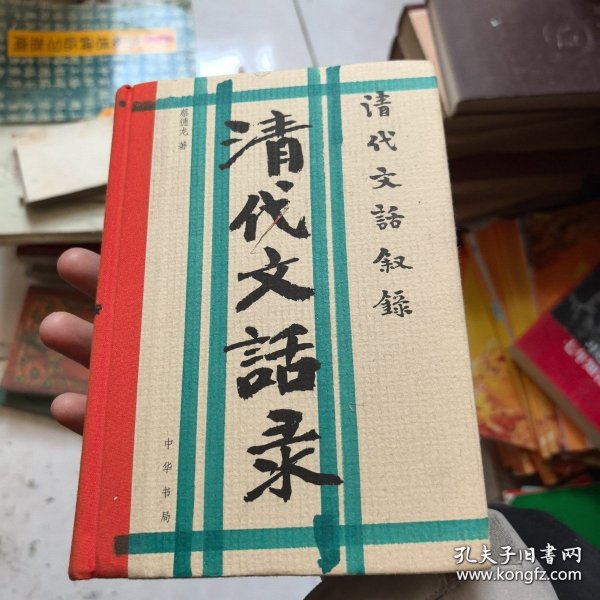 清代文話叙錄
清代文話录
蔡德龙 著
中华书局
孔夫子旧书网
www.kongfz.com